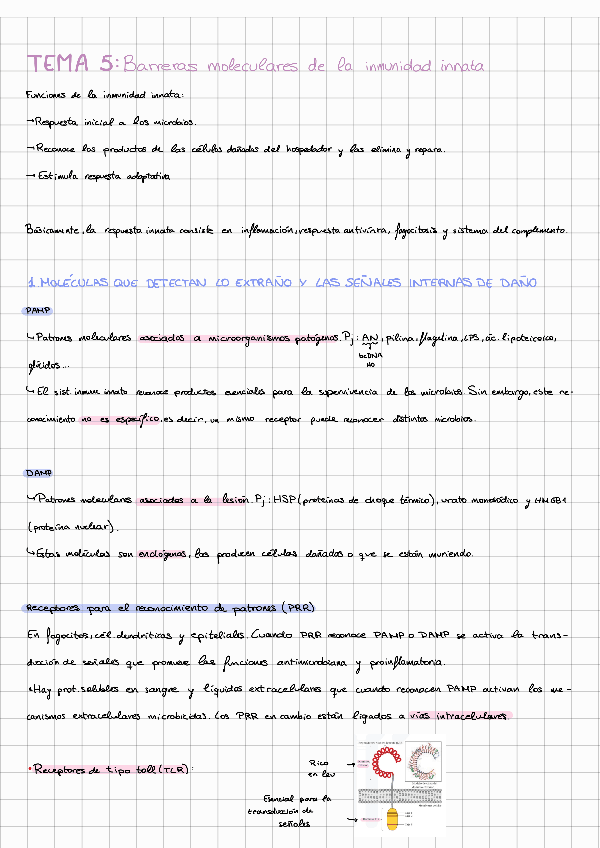 TEMA 5: Barreras moleculares de la inmunidad innata
Funciones de la inmunidad innata:
→Respuesta inicial a los microbios.
→Reconoce los productos de las células dañadas del hospedador y las elimina y repara.
→Estimula respuesta adaptativa
Básicamente, la respuesta innata consiste en inflamación, respuesta antivírica, fagocitosis y sistema del complemento.
1. MOLÉCULAS QUE DETECTAN LO EXTRAÑO Y LAS SEÑALES INTERNAS DE DAÑO
PAMP
↳Patrones moleculares asociados a microorganismos patógenos. Pj: AN, pilina, flagelina, LPS, ác. lipoteicoico,
bcDNA
NO
glúcidos...
↳El sist. inmune innato reconoce productos esenciales para la supervivencia de los microbios. Sin embargo, este re-
conocimiento no es específico, es decir, un mismo receptor puede reconocer distintos microbios.
DAMP
↳Patrones moleculares asociados a la lesión. Pj: HSP (proteínas de choque térmico), urato monosódico y HMGB1
(proteína nuclear).
↳Estas moléculas son endógenas, las producen células dañadas o que se están muriendo.
Receptores para el reconocimiento de patrones (PRR)
En fagocitos, cél. dendríticas y epiteliales. Cuando PRR reconoce PAMP o DAMP se activa la trans-
ducción de señales que promueve las funciones antimicrobiana y proinflamatoria.
*Hay prot. solubles en sangre y líquidos extracelulares que cuando reconocen PAMP activan los me-
canismos extracelulares microbicidas. Los PRR en cambio están ligados a vías intracelulares
• Receptores de tipo toll (TLR):
Rico
en leu
Esencial para la
transducción de
señales